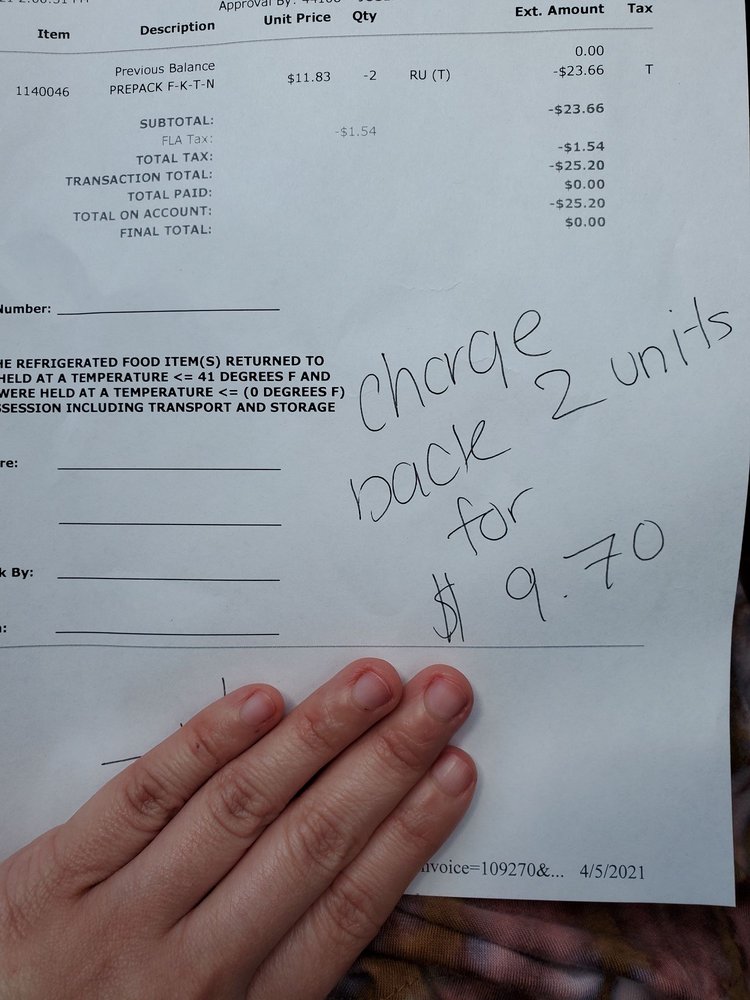 Approval By:
Item Description Unit Price Qty Ext. Amount Tax
Previous Balance 0.00
1140046 PREPACK F-K-T-N $11.83 -2 RU (T) -$23.66 T
SUBTOTAL: -$23.66
FLA Tax: -$1.54
TOTAL TAX: -$1.54
TRANSACTION TOTAL: -$25.20
TOTAL PAID: $0.00
TOTAL ON ACCOUNT: -$25.20
FINAL TOTAL: $0.00
Number:
HE REFRIGERATED FOOD ITEM(S) RETURNED TO
HELD AT A TEMPERATURE <= 41 DEGREES F AND
WERE HELD AT A TEMPERATURE <= (0 DEGREES F)
SSESSION INCLUDING TRANSPORT AND STORAGE
charge
back 2 units
for
$ 9.70
re:
k By:
:
nvoice=109270&... 4/5/2021